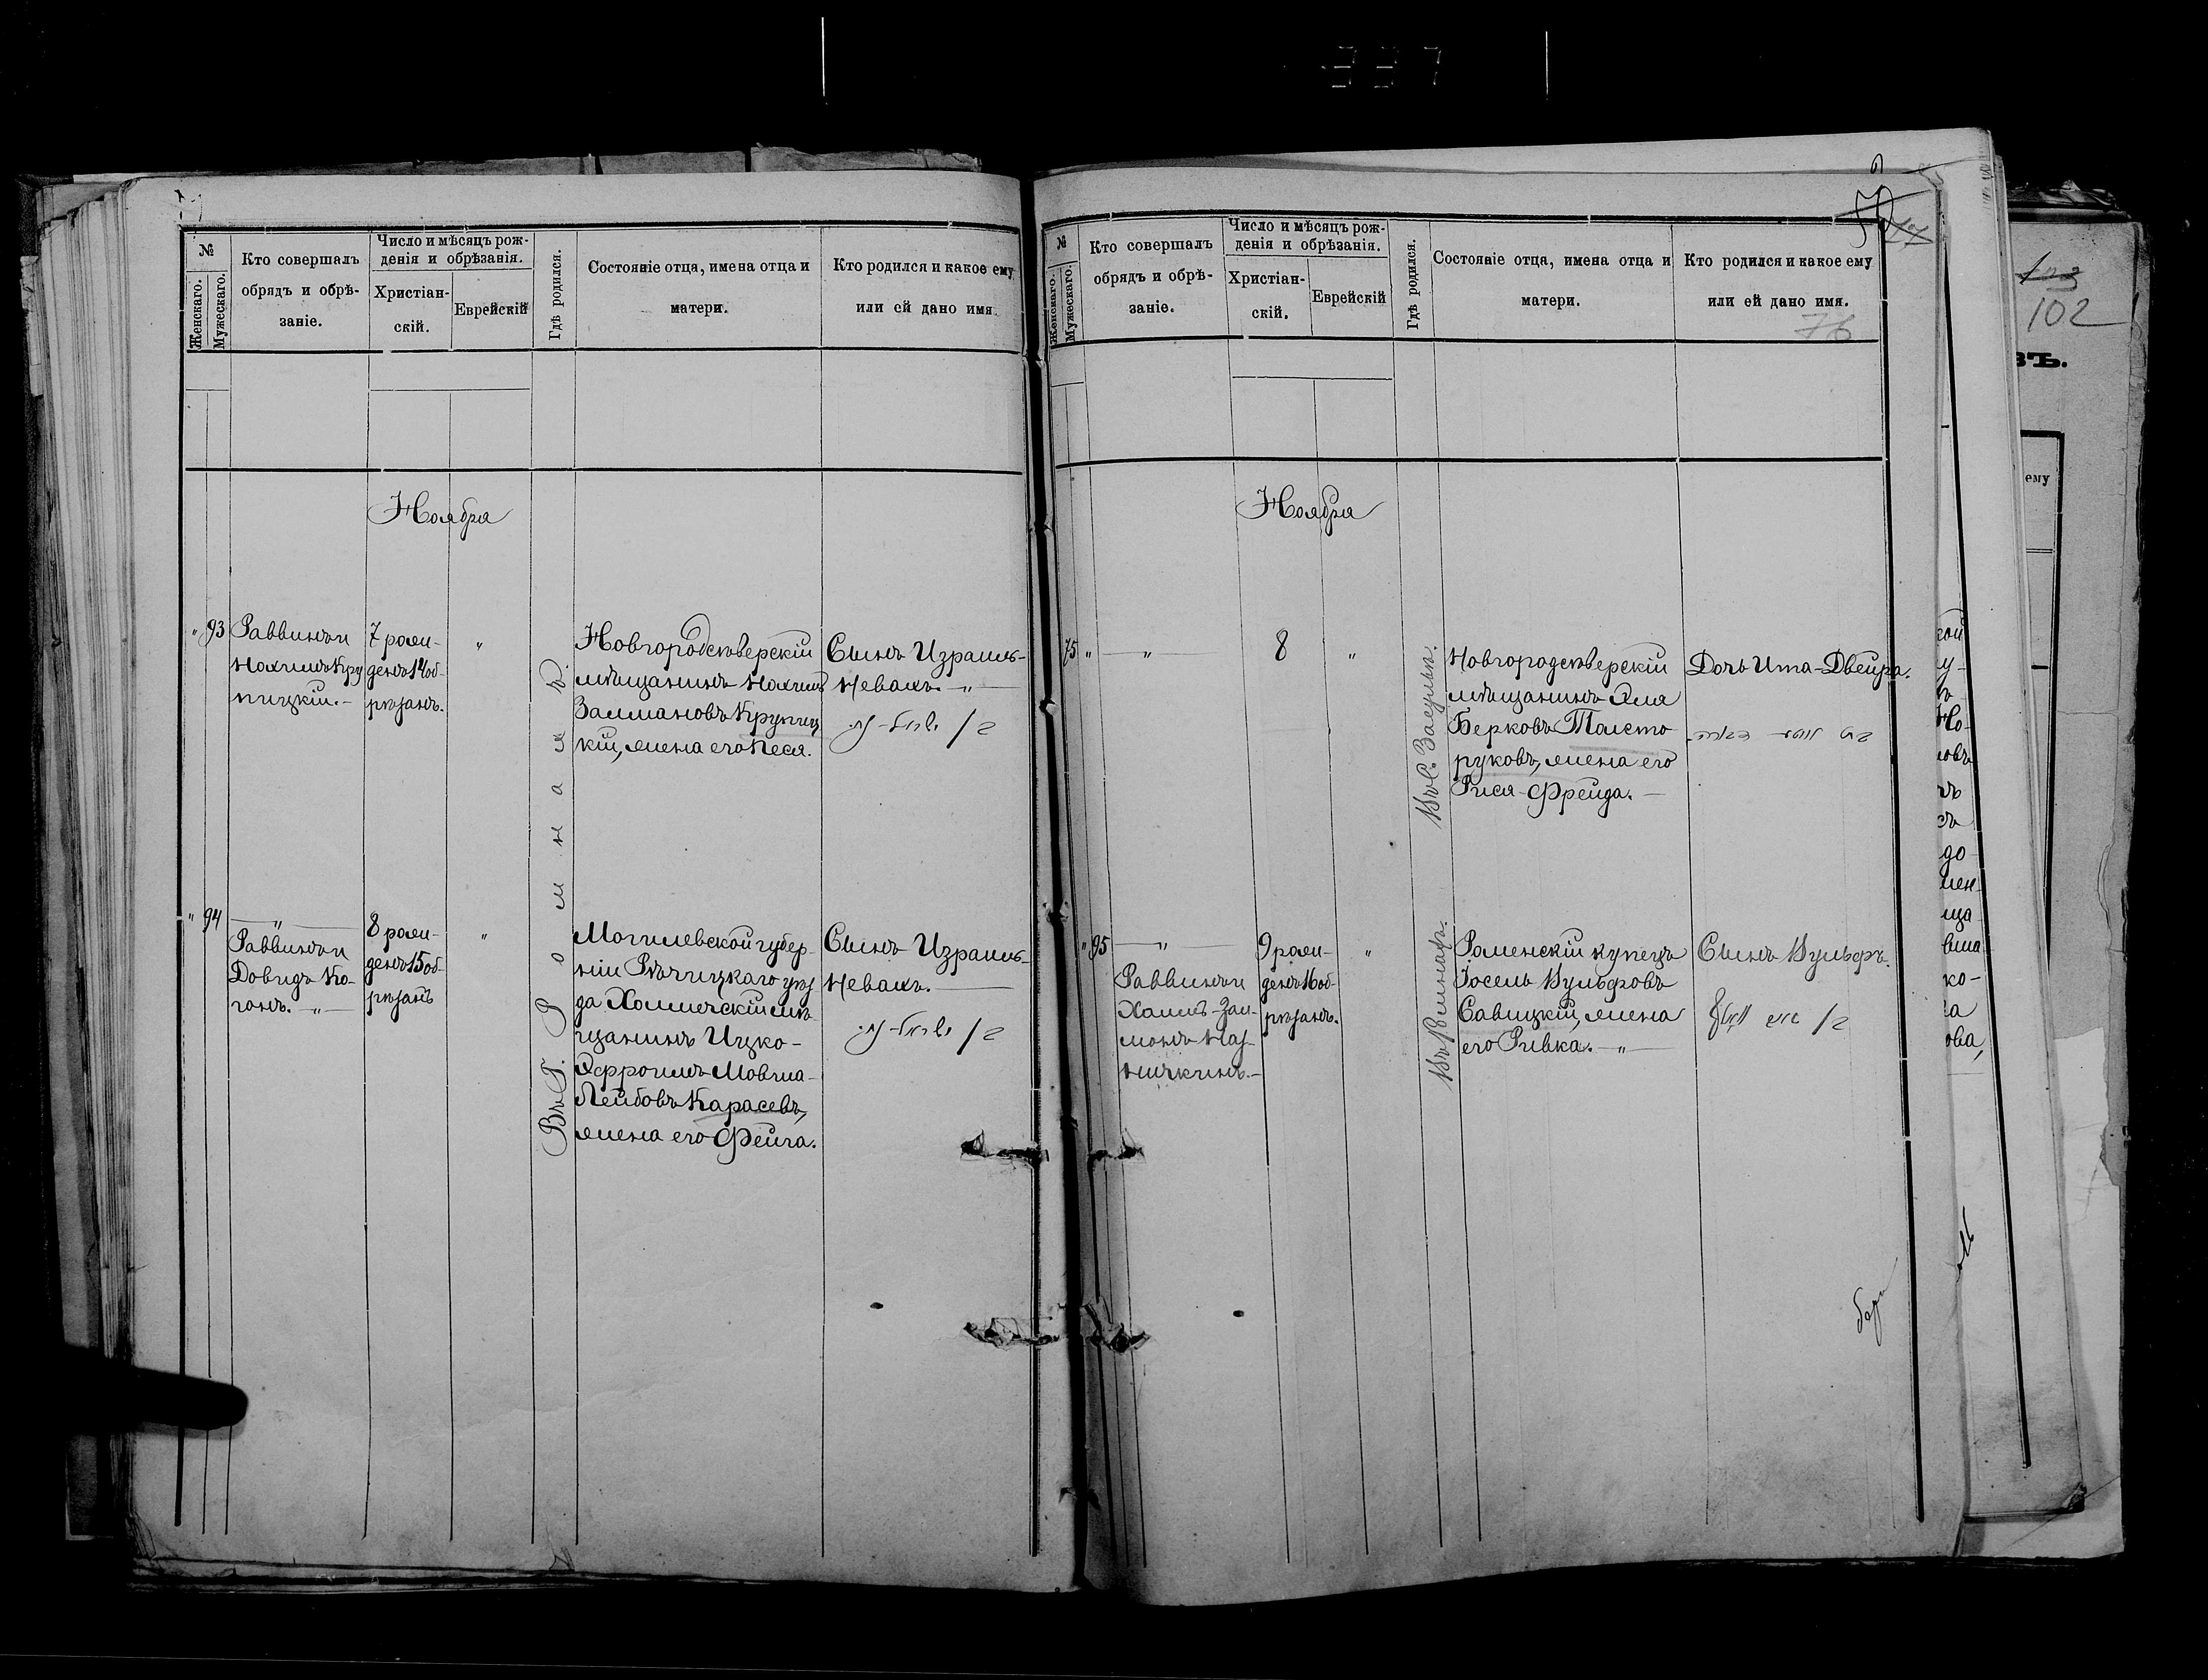 №
Женскаго.
Мужескаго.
Кто совершалъ
обрядъ и обрѣ-
заніе.
Число и мѣсяцъ рож-
денія и обрѣзанія.
Христіан-
скій.
Еврейскій
Гдѣ родился.
Состояніе отца, имена отца и
матери.
Кто родился и какое ему
или ей дано имя.
Ноября
" 93
Раввинъ и
Нохимъ Кру
пицкій.-
7 рож-
денъ 14 об-
рѣзанъ.
"
Въ Г. Ромнахъ.
Новгородсѣверскій
мѣщанинъ Нохимъ
Залмановъ Крупиц
кій, жена его Песя.
Сынъ Израиль-
Невахъ. "
" 94
"
Раввинъ и
Довидъ Ко-
ганъ. "
8 рож-
денъ 15 об-
рѣзанъ
"
Могилевской губер-
ніи Рѣчицкаго уѣз
да Холмечскій мѣ-
щанинъ Ицко-
Эфроимъ Мовша-
Лейбовъ Карасевъ,
жена его Фейга.
Сынъ Израиль-
Невахъ.
№
Женскаго.
Мужескаго.
Кто совершалъ
обрядъ и обрѣ-
заніе.
Число и мѣсяцъ рож-
денія и обрѣзанія.
Христіан-
скій.
Еврейскій
Гдѣ родился.
Состояніе отца, имена отца и
матери.
Кто родился и какое ему
или ей дано имя.
76
Ноября
75 "
"
8
"
Новгородсѣверскій
мѣщанинъ Эля
Берковъ Толсто
руковъ, жена его
Рися-Фрейда.
Дочь Ита-Двейра.
" 95
"
Раввинъ и
Хаимъ-Зал-
монъ
9 рож-
денъ 16 об-
рѣзанъ.
"
Въ Г. Ромнахъ.
Роменскій купецъ
Іосель Вульфовъ
Савицкій, жена
его Ривка. "
Сынъ Вульфъ.
102
въ.
ему